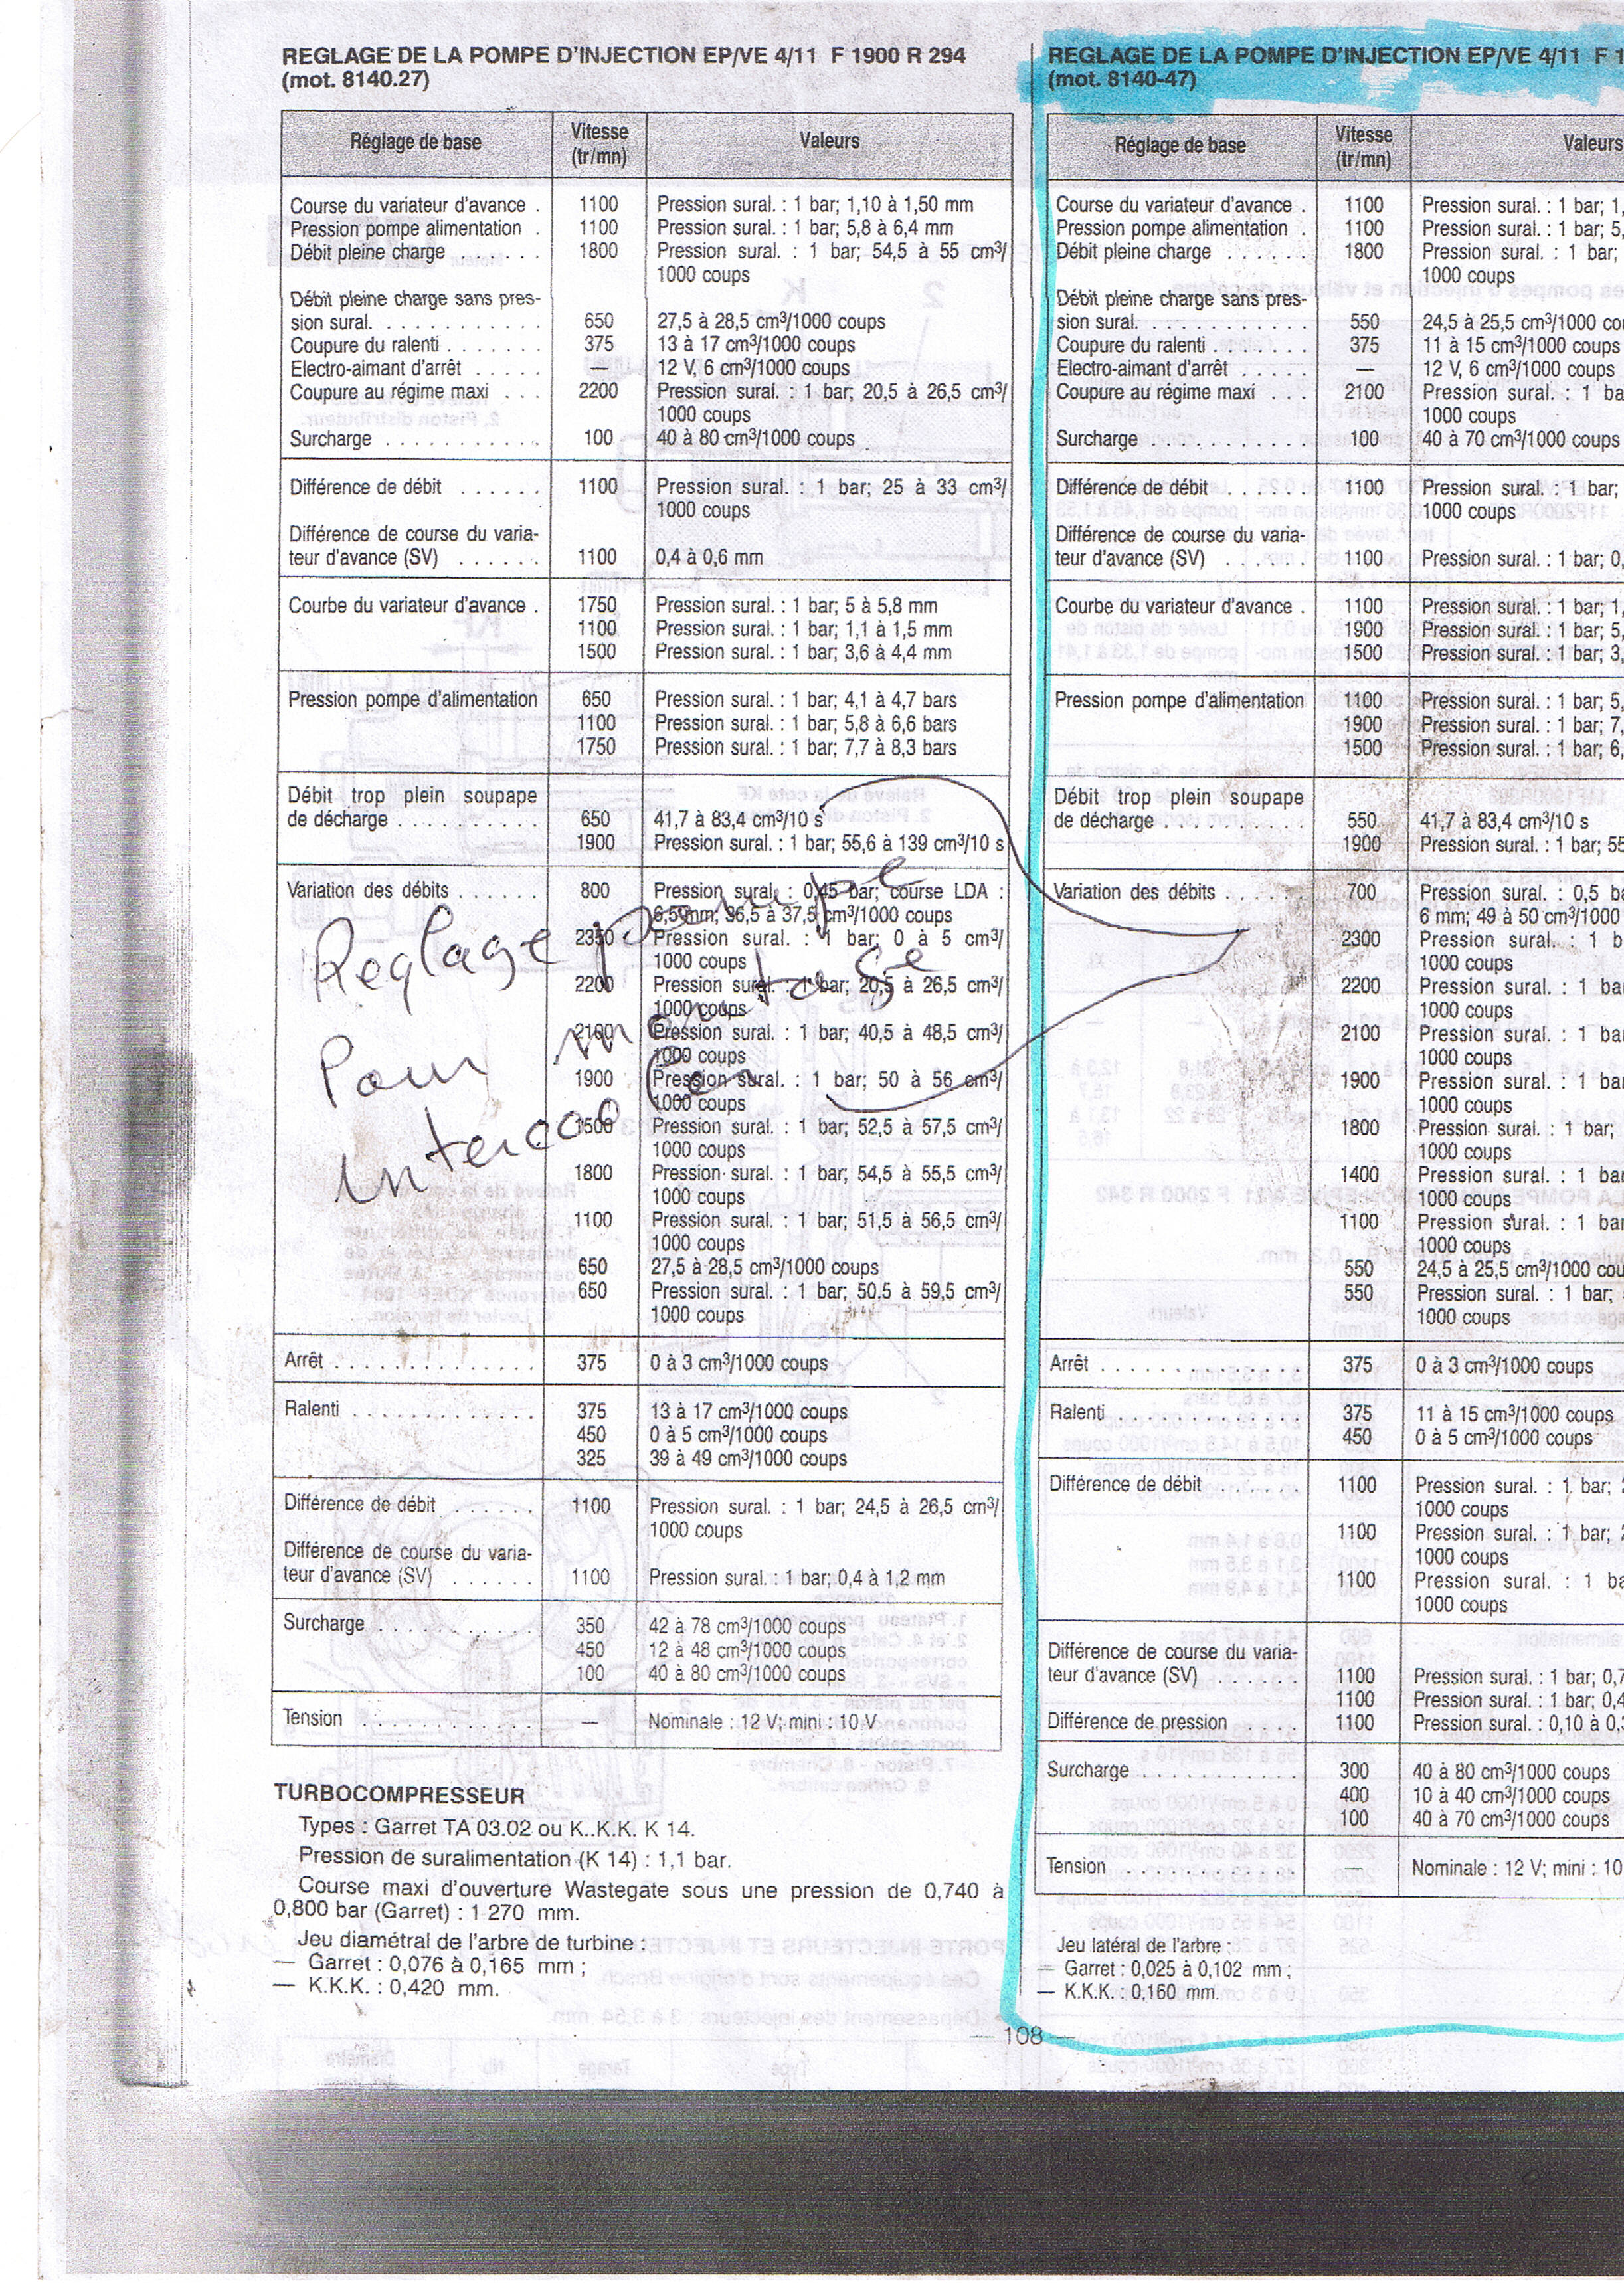 REGLAGE DE LA POMPE D'INJECTION EP/VE 4/11 F 1900 R 294
(mot. 8140.27)
Réglage de base Vitesse (tr/mn) Valeurs
Course du variateur d'avance . 1100 Pression sural. : 1 bar; 1,10 à 1,50 mm
Pression pompe alimentation . 1100 Pression sural. : 1 bar; 5,8 à 6,4 mm
Débit pleine charge . . . . . . 1800 Pression sural. : 1 bar; 54,5 à 55 cm³/
1000 coups
Débit pleine charge sans pres-
sion sural. . . . . . . . . . . . 650 27,5 à 28,5 cm³/1000 coups
Coupure du ralenti . . . . . . . 375 13 à 17 cm³/1000 coups
Electro-aimant d'arrêt . . . . . — 12 V, 6 cm³/1000 coups
Coupure au régime maxi . . . 2200 Pression sural. : 1 bar; 20,5 à 26,5 cm³/
1000 coups
Surcharge . . . . . . . . . . . . 100 40 à 80 cm³/1000 coups
Différence de débit . . . . . . 1100 Pression sural. : 1 bar; 25 à 33 cm³/
1000 coups
Différence de course du varia-
teur d'avance (SV) . . . . . . 1100 0,4 à 0,6 mm
Courbe du variateur d'avance . 1750 Pression sural. : 1 bar; 5 à 5,8 mm
1100 Pression sural. : 1 bar; 1,1 à 1,5 mm
1500 Pression sural. : 1 bar; 3,6 à 4,4 mm
Pression pompe d'alimentation 650 Pression sural. : 1 bar; 4,1 à 4,7 bars
1100 Pression sural. : 1 bar; 5,8 à 6,6 bars
1750 Pression sural. : 1 bar; 7,7 à 8,3 bars
Débit trop plein soupape
de décharge . . . . . . . . . . 650 41,7 à 83,4 cm³/10 s
1900 Pression sural. : 1 bar; 55,6 à 139 cm³/10 s
Variation des débits . . . . . . 800 Pression sural. : 0,45 bar; course LDA :
6,5 mm; 36,5 à 37,5 cm³/1000 coups
2350 Pression sural. : 1 bar; 0 à 5 cm³/
1000 coups
2200 Pression sural. : 1 bar; 20,5 à 26,5 cm³/
1000 coups
2100 Pression sural. : 1 bar; 40,5 à 48,5 cm³/
1000 coups
1900 Pression sural. : 1 bar; 50 à 56 cm³/
1000 coups
1500 Pression sural. : 1 bar; 52,5 à 57,5 cm³/
1000 coups
1800 Pression sural. : 1 bar; 54,5 à 55,5 cm³/
1000 coups
1100 Pression sural. : 1 bar; 51,5 à 56,5 cm³/
1000 coups
650 27,5 à 28,5 cm³/1000 coups
650 Pression sural. : 1 bar; 50,5 à 59,5 cm³/
1000 coups
Arrêt . . . . . . . . . . . . . . . 375 0 à 3 cm³/1000 coups
Ralenti . . . . . . . . . . . . . 375 13 à 17 cm³/1000 coups
450 0 à 5 cm³/1000 coups
325 39 à 49 cm³/1000 coups
Différence de débit . . . . . . 1100 Pression sural. : 1 bar; 24,5 à 26,5 cm³/
1000 coups
Différence de course du varia-
teur d'avance (SV) . . . . . . 1100 Pression sural. : 1 bar; 0,4 à 1,2 mm
Surcharge . . . . . . . . . . . 350 42 à 78 cm³/1000 coups
450 12 à 48 cm³/1000 coups
100 40 à 80 cm³/1000 coups
Tension . . . . . . . . . . . . — Nominale : 12 V; mini : 10 V
Reglage pompe
Pour montage
intercooler
TURBOCOMPRESSEUR
Types : Garret TA 03.02 ou K..K.K. K 14.
Pression de suralimentation (K 14) : 1,1 bar.
Course maxi d'ouverture Wastegate sous une pression de 0,740 à
0,800 bar (Garret) : 1 270 mm.
Jeu diamétral de l'arbre de turbine :
— Garret : 0,076 à 0,165 mm ;
— K.K.K. : 0,420 mm.
REGLAGE DE LA POMPE D'INJECTION EP/VE 4/11 F 1
(mot. 8140-47)
Réglage de base Vitesse (tr/mn) Valeurs
Course du variateur d'avance . 1100 Pression sural. : 1 bar; 1,
Pression pompe alimentation . 1100 Pression sural. : 1 bar; 5,
Débit pleine charge . . . . . . 1800 Pression sural. : 1 bar;
1000 coups
Débit pleine charge sans pres-
sion sural. . . . . . . . . . . . 550 24,5 à 25,5 cm³/1000 cou
Coupure du ralenti . . . . . . . 375 11 à 15 cm³/1000 coups
Electro-aimant d'arrêt . . . . . — 12 V, 6 cm³/1000 coups
Coupure au régime maxi . . . 2100 Pression sural. : 1 ba
1000 coups
Surcharge . . . . . . . . . . . . 100 40 à 70 cm³/1000 coups
Différence de débit . . . . . . 1100 Pression sural. : 1 bar;
1000 coups
Différence de course du varia-
teur d'avance (SV) . . . . . . 1100 Pression sural. : 1 bar; 0,
Courbe du variateur d'avance . 1100 Pression sural. : 1 bar; 1,
1900 Pression sural. : 1 bar; 5,
1500 Pression sural. : 1 bar; 3,
Pression pompe d'alimentation 1100 Pression sural. : 1 bar; 5,
1900 Pression sural. : 1 bar; 7,
1500 Pression sural. : 1 bar; 6,
Débit trop plein soupape
de décharge . . . . . . . . . . 550 41,7 à 83,4 cm³/10 s
1900 Pression sural. : 1 bar; 55
Variation des débits . . . . . . 700 Pression sural. : 0,5 ba
6 mm; 49 à 50 cm³/1000
2300 Pression sural. : 1 b
1000 coups
2200 Pression sural. : 1 ba
1000 coups
2100 Pression sural. : 1 ba
1000 coups
1900 Pression sural. : 1 ba
1000 coups
1800 Pression sural. : 1 bar;
1000 coups
1400 Pression sural. : 1 ba
1000 coups
1100 Pression sural. : 1 ba
1000 coups
550 24,5 à 25,5 cm³/1000 cou
550 Pression sural. : 1 bar;
1000 coups
Arrêt . . . . . . . . . . . . . . . 375 0 à 3 cm³/1000 coups
Ralenti . . . . . . . . . . . . . 375 11 à 15 cm³/1000 coups
450 0 à 5 cm³/1000 coups
Différence de débit . . . . . . 1100 Pression sural. : 1 bar; 2
1000 coups
1100 Pression sural. : 1 bar; 2
1000 coups
1100 Pression sural. : 1 ba
1000 coups
Différence de course du varia-
teur d'avance (SV) . . . . . . 1100 Pression sural. : 1 bar; 0,7
1100 Pression sural. : 1 bar; 0,4
Différence de pression 1100 Pression sural. : 0,10 à 0,
Surcharge . . . . . . . . . . . 300 40 à 80 cm³/1000 coups
400 10 à 40 cm³/1000 coups
100 40 à 70 cm³/1000 coups
Tension . . . . . . . . . . . . — Nominale : 12 V; mini : 10
Jeu latéral de l'arbre :
— Garret : 0,025 à 0,102 mm ;
— K.K.K. : 0,160 mm.
— 108 —